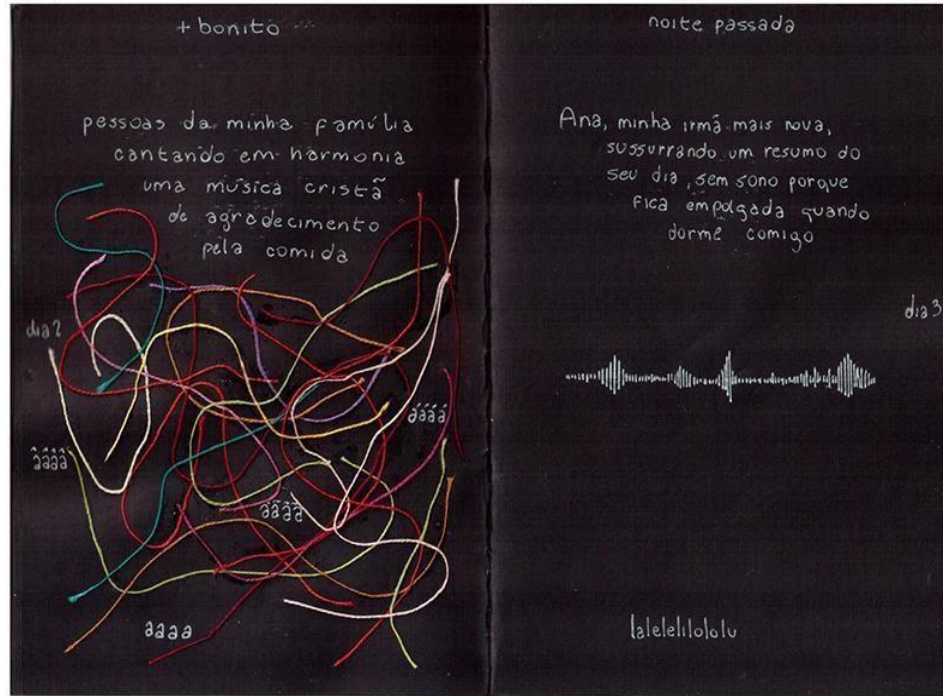 + bonito
pessoas da minha família
cantando em harmonia
uma música cristã
de agradecimento
pela comida
dia 2
áááá
ââââ
ãããã
aaaa
noite passada
Ana, minha irmã mais nova,
sussurrando um resumo do
seu dia, sem sono porque
fica empolgada quando
dorme comigo
dia 3
lalelelilololu